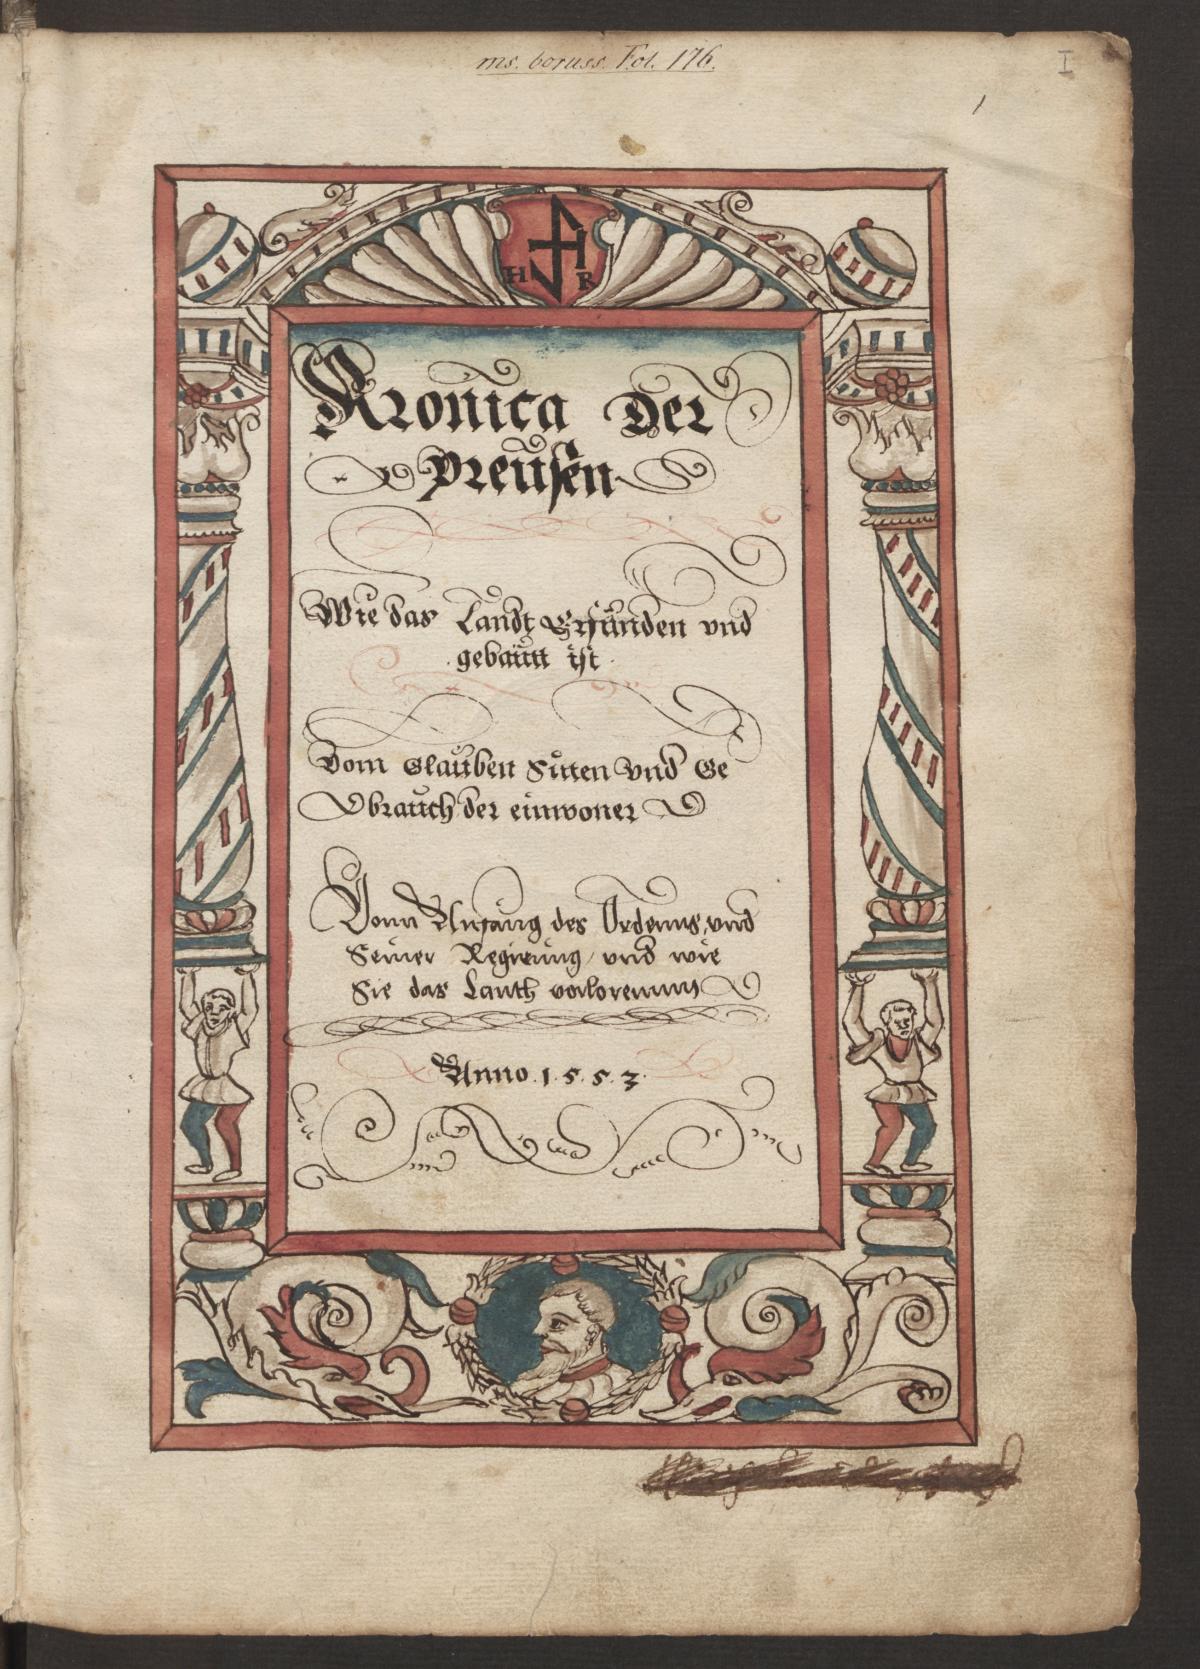 ms. boruss. Fol. 176.
I
1
H R
Kronica Der
Preüsen
Wie das Landt Erfünden vnd
gebaütt ist
Vom Glaüben Sitten Vnd Ge
braüch der einwoner
Vonn Anfang des Ordenns, vnd
Seiner Regirüng, vnd wie
Sie das Lanth vorlorenn
Anno . 1 . 5 . 5 . 3 .